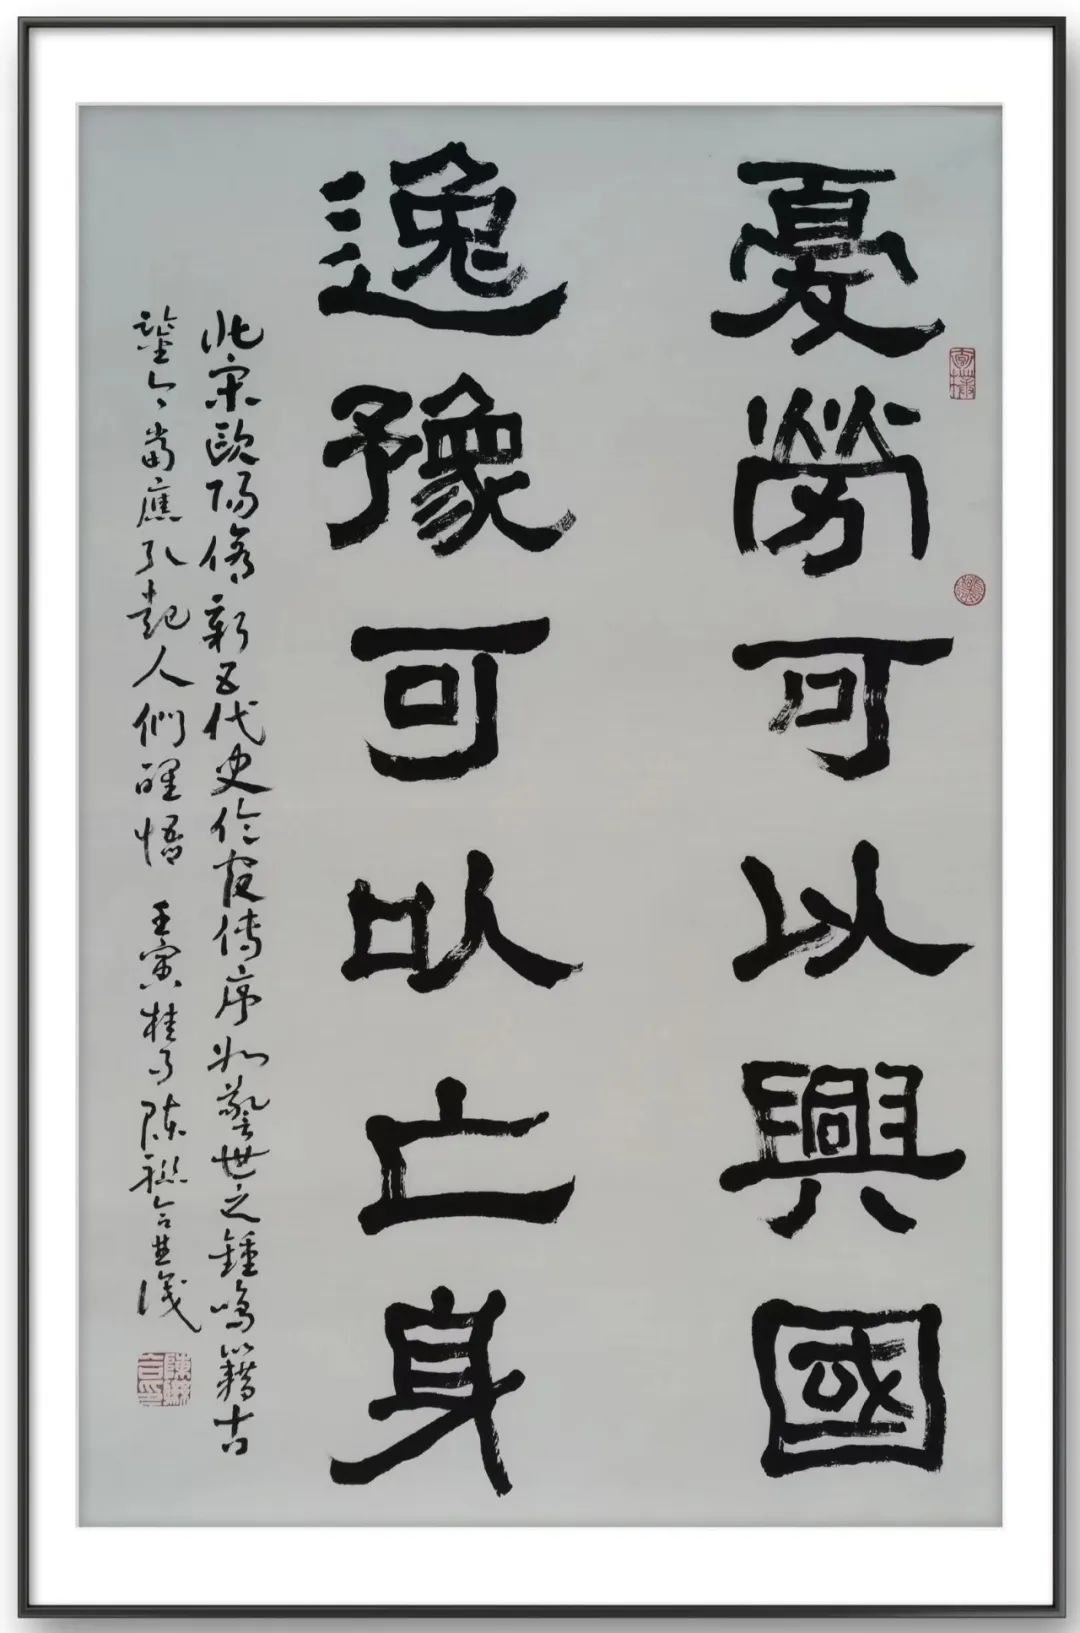 憂勞可以興國
逸豫可以亡身
北宋歐陽脩新五代史伶官傳序如警世之鍾鳴以藉古
鑒今當應引起人們醒悟 壬寅桂月陳聯合並識
陳聯合印